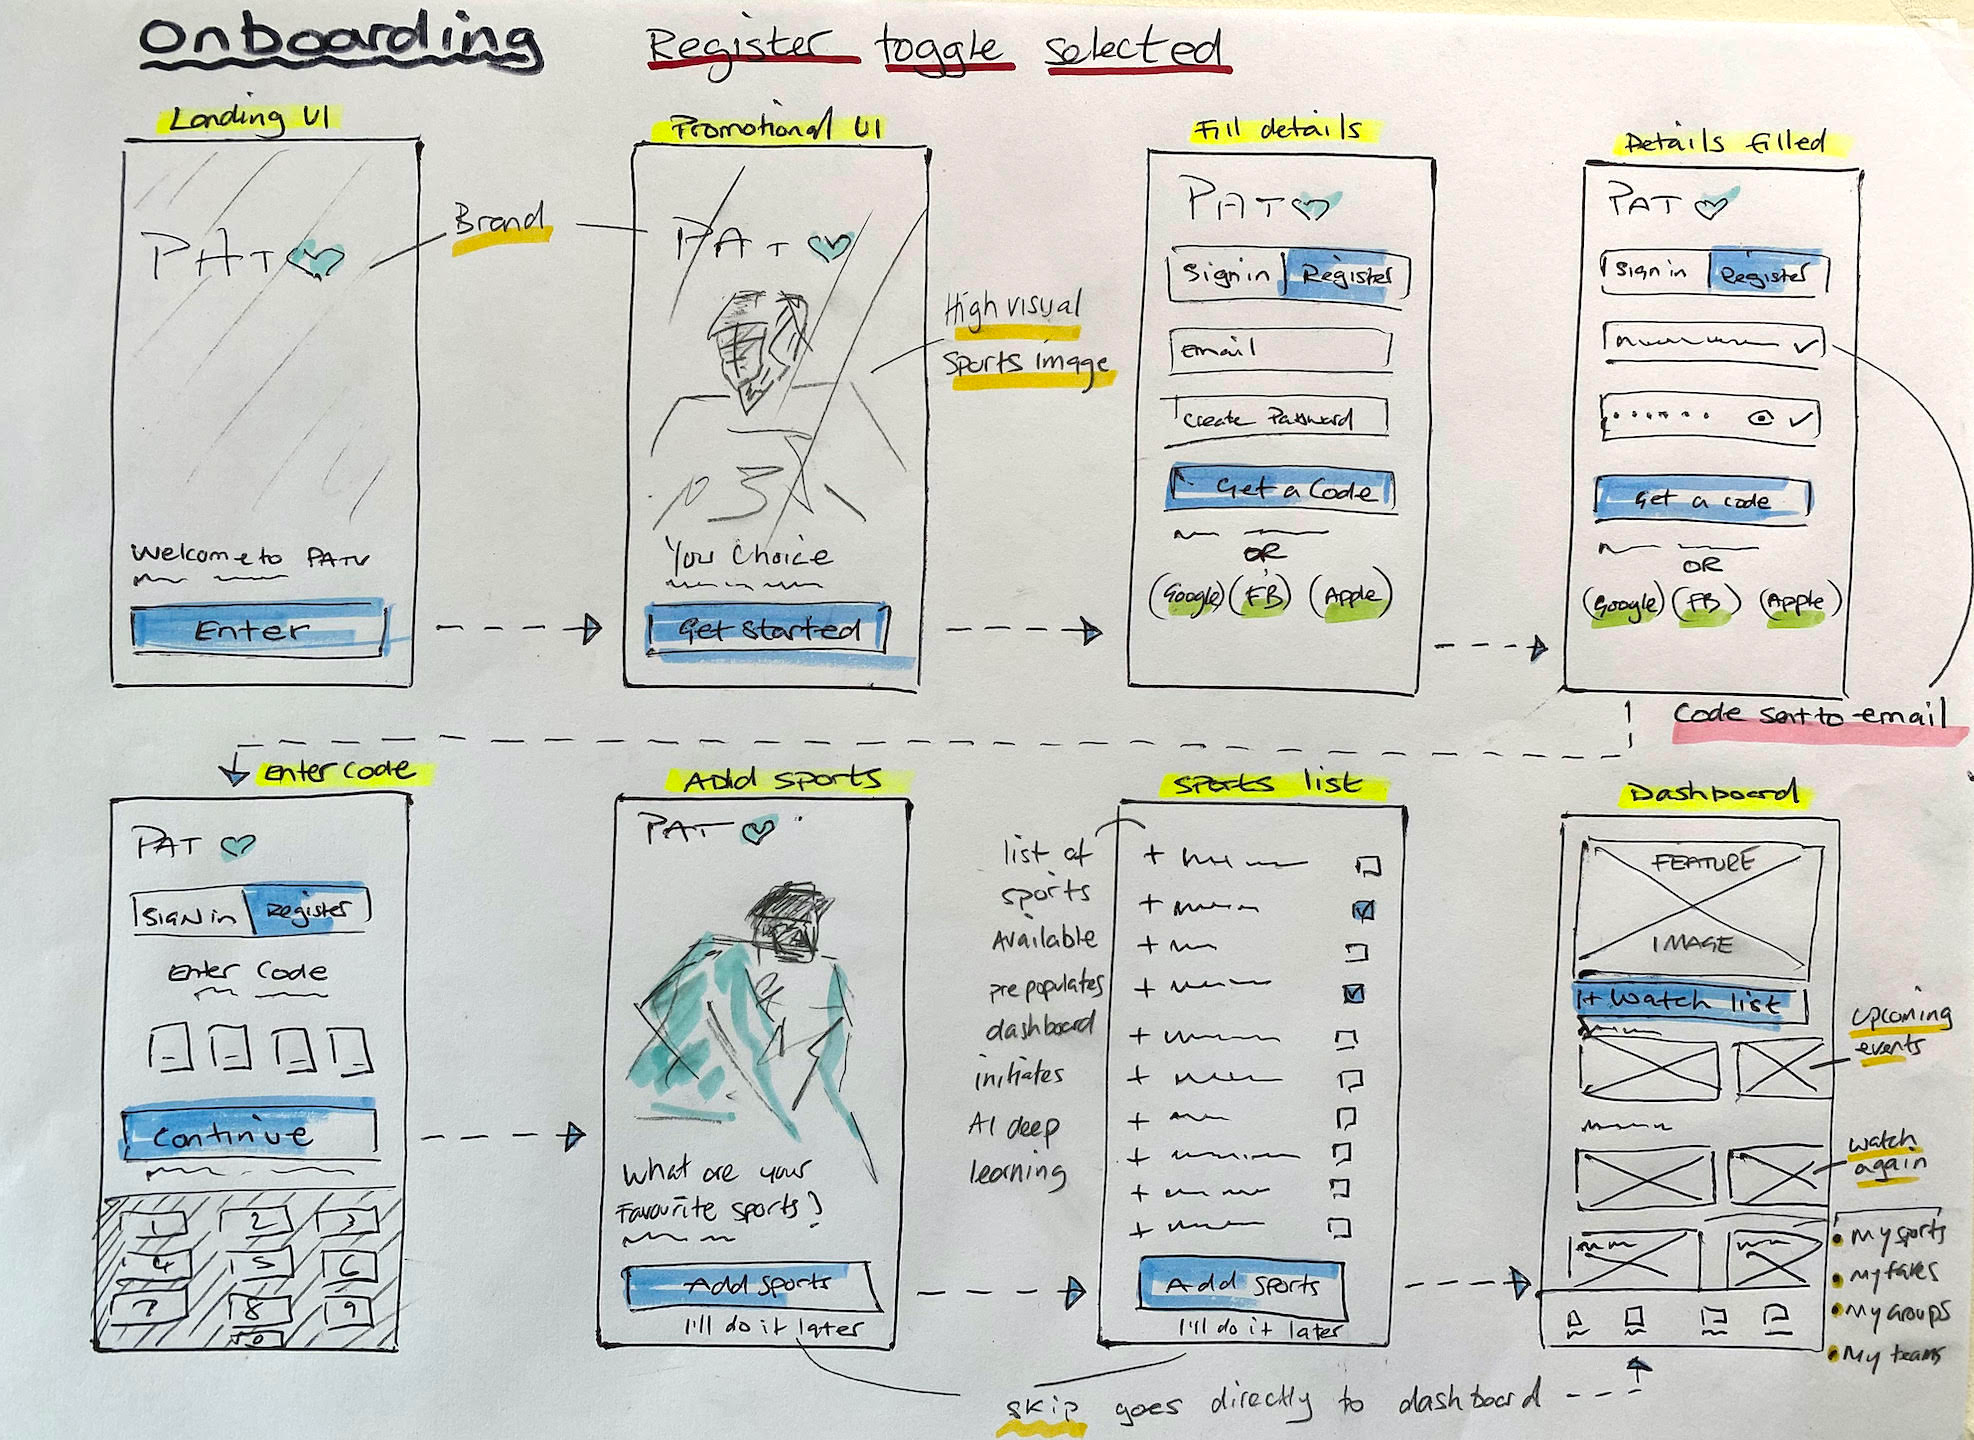 Onboarding
Register toggle selected
Landing UI
PAT
Welcome to PATV
Enter
Brand
Promotional UI
PAT
Your Choice
Get Started
High visual
Sports image
Fill details
PAT
Sign in Register
Email
Create Password
Get a Code
OR
(Google) (FB) (Apple)
Details filled
PAT
Sign in Register
Get a code
OR
(Google) (FB) (Apple)
Code sent to email
Enter code
PAT
SIGN in Register
Enter Code
Continue
1 2 3
4 5 6
7 8 9
0
Add sports
PAT
What are your
Favourite sports?
Add sports
I'll do it later
Sports list
list of
sports
Available
pre populates
dashboard
initiates
AI deep
learning
Add sports
I'll do it later
Skip goes directly to dashboard
Dashboard
FEATURE
IMAGE
+ Watch list
Upcoming
events
Watch
again
My sports
My faves
My groups
My teams